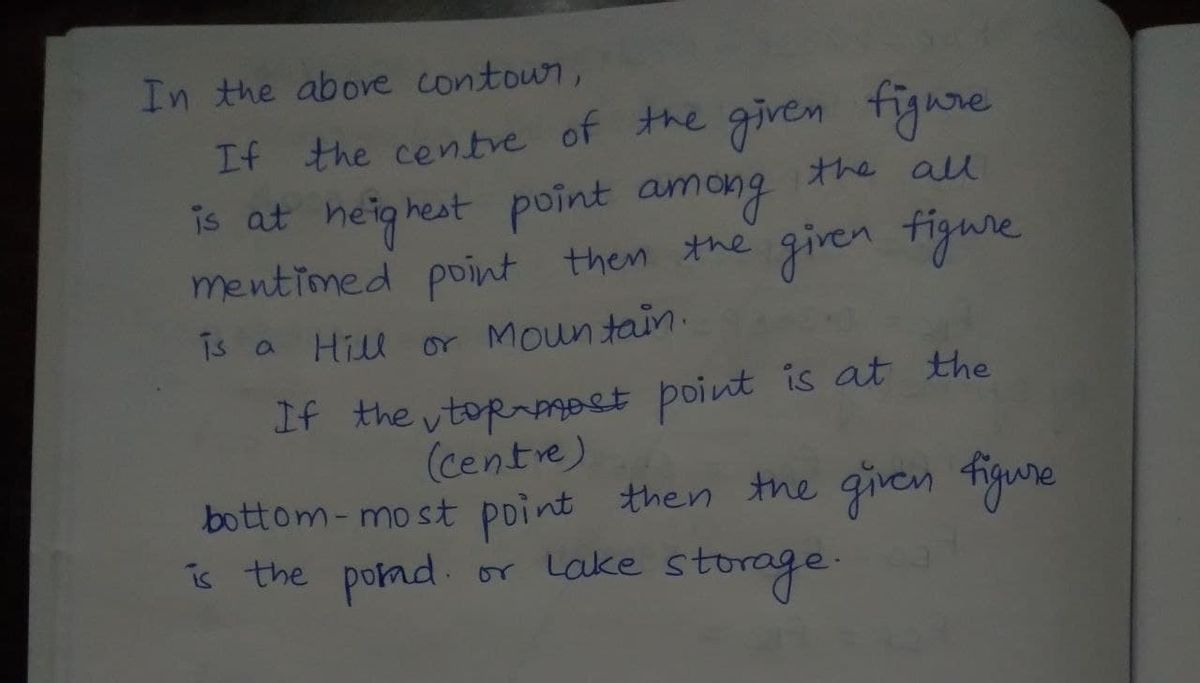 In the above contour,
If the centre of the given figure
is at heighest point among the all
mentioned point then the given figure
is a Hill or Mountain.
If the top-most point is at the
(centre)
bottom-most point then the given figure
is the pond. or Lake storage.